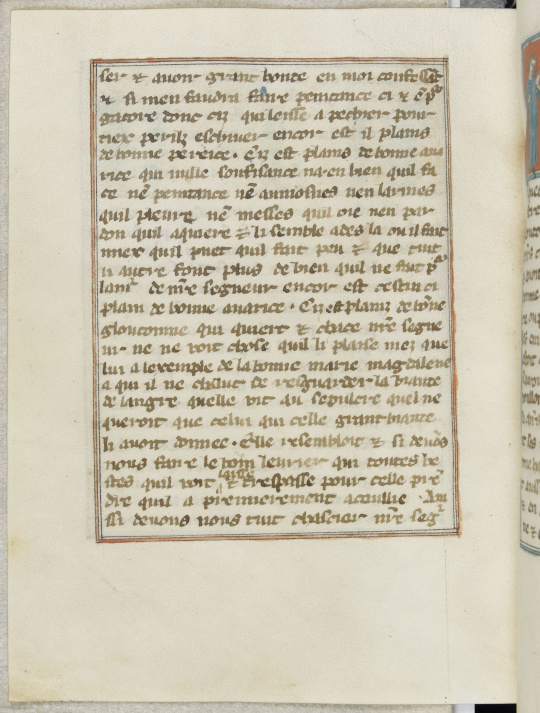 ser ⁊ auoir grant honte en moi confessãt
⁊ si men faudra faire penitance ci ⁊ ē p̄
gatore donc cilz qui leisse a pechier pour
tiex perilz eschiuer encor est il plains
de bonne perece. Cilz est plains de bonne aua
rice qui nulle souffisance na en bien quil fa
ce ne penitance ne aumosnes nen larmes
quil pleure ne messes quil oie nen par
don quil aquiere ⁊ li semble ades la ou il fait
miex quil puet quil fait peu ⁊ que tuit
li autre font plus de bien quil ne fait p̄
lamr̄ de nr̄e segneur encor est cestui ci
plain de bonne auarice. Cilz est plainz de bōne
gloutonnie qui quiert ⁊ chace nr̄e segne
ur. ne ne voit chose quil li plaise mez que
lui a lexemple de la bonne marie magdalene
a qui il ne chalut de resguarder la biaute
de langre quelle vit au sepulcre quel ne
queroit que celui qui celle grant biaute
li auoit donnee. Elle resembloit ⁊ si deuōs
nous faire le bom leurier qui toutes be
stes quil voit laisse ⁊ trespasse pour celle prē
dre quil a premierement acuillie. Au
ssi deuons nous tuit chascier nr̄e segr̄